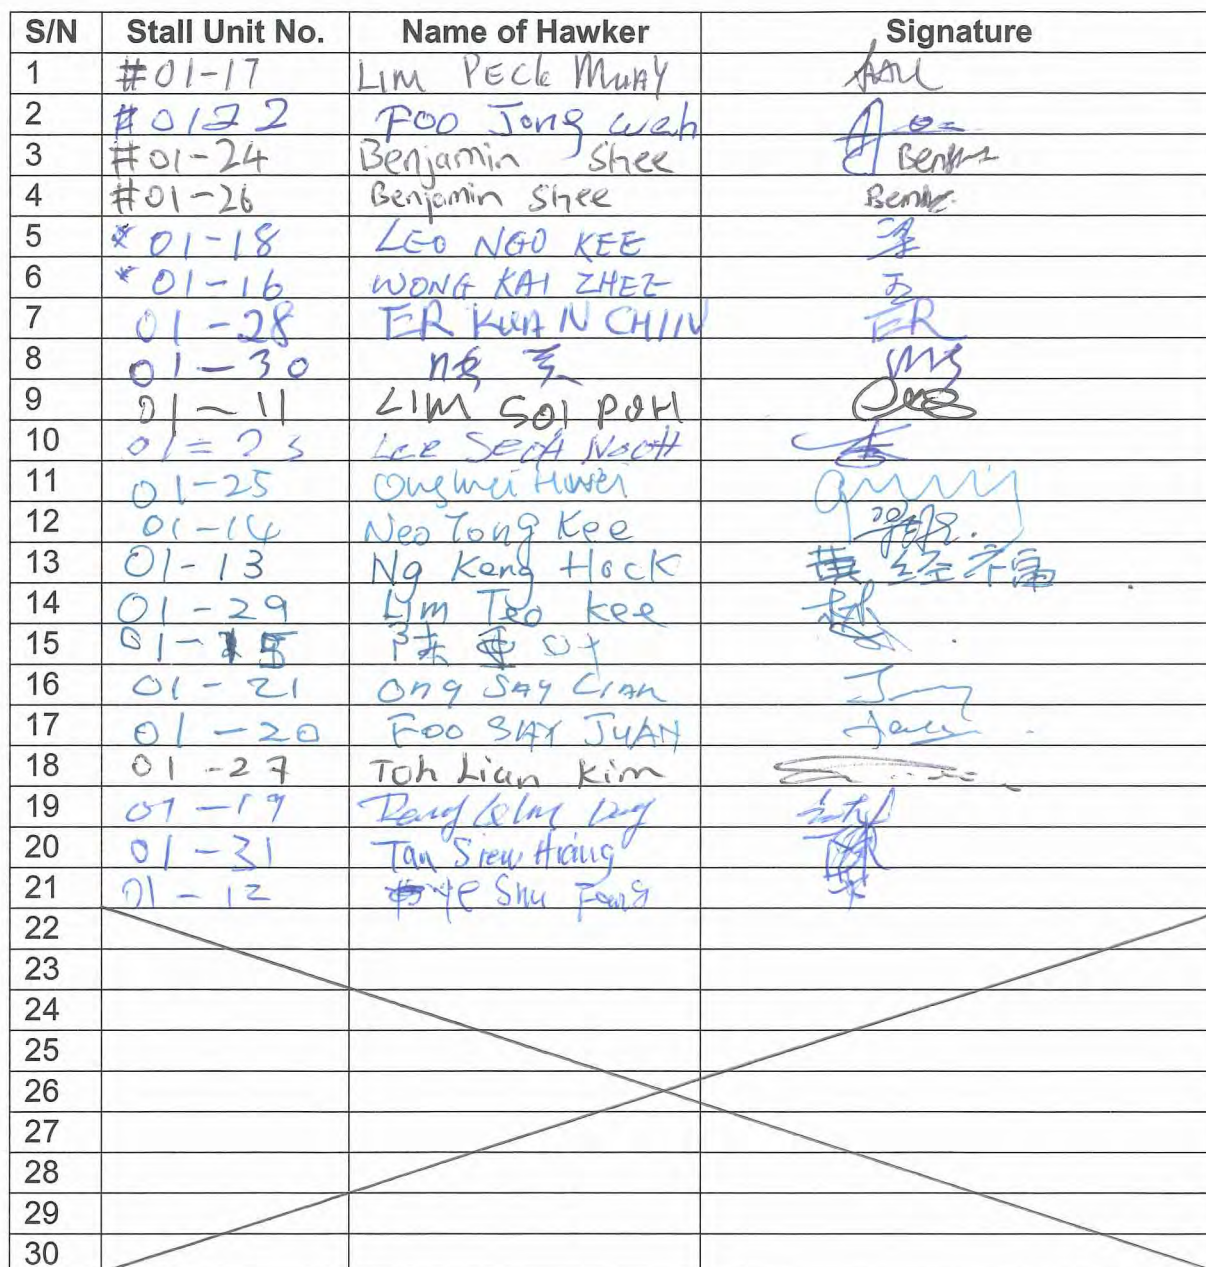 S/N Stall Unit No. Name of Hawker Signature
1 #01-17 LIM PECK MUAY
2 #0122 FOO Jong wah
3 #01-24 Benjamin Shee
4 #01-26 Benjamin Shee
5 *01-18 LEO NGO KEE 梁
6 *01-16 WONG KAI ZHEE 王
7 01-28 ER KUAN CHIN ER
8 01-30
9 01-11 LIM SOI POH
10 01=23 LEE SECK NOOH 李
11 01-25
12 01-14 Neo Tong Kee
13 01-13 Ng Keng Hock 黄 经 福
14 01-29 Lim Teo Kee 林
15 01-15
16 01-21 Ong SAY LIAN
17 01-20 FOO SAY JUAN
18 01-27 Toh Lian Kim
19 01-19
20 01-31 Tan Siew Hiang
21 01-12 Ye Shu Fang
22
23
24
25
26
27
28
29
30